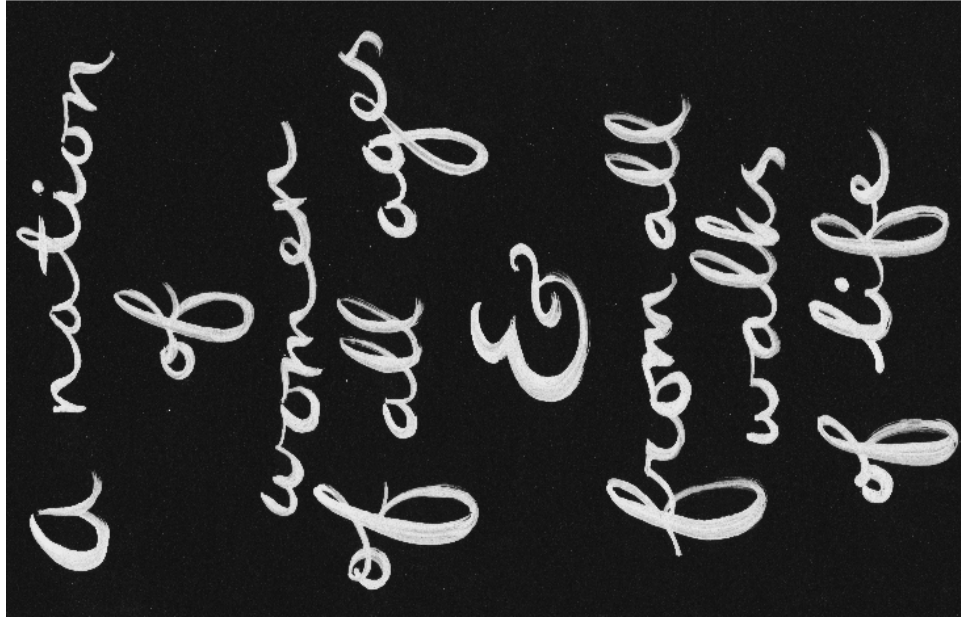 a nation
of
women
of all ages
&
from all
walks
of life